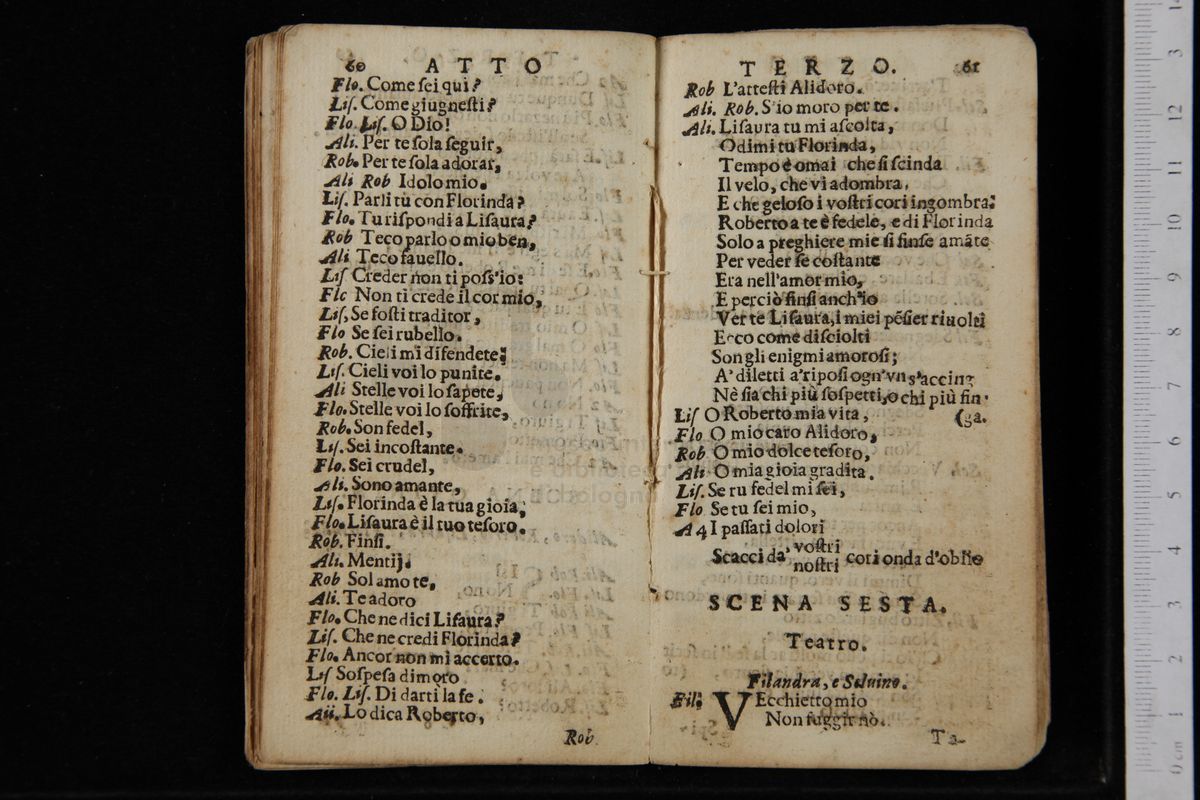 60 ATTO
Flo. Come ſei qui?
Liſ. Come giugneſti?
Flo. Liſ. O Dio!
Ali. Per te ſola ſeguir,
Rob. Per te ſola adorar,
Ali Rob Idolo mio.
Liſ. Parli tù con Florinda?
Flo. Tu riſpondi a Liſaura?
Rob Teco parlo o mio ben,
Ali Teco fauello.
Liſ Creder non ti poſs'io:
Flc Non ti crede il cor mio,
Liſ. Se foſti traditor,
Flo Se ſei rubello.
Rob. Cieli mi difendete;
Liſ. Cieli voi lo punite.
Ali Stelle voi lo ſapete,
Flo. Stelle voi lo ſoffrite,
Rob. Son fedel,
Liſ. Sei incoſtante.
Flo. Sei crudel,
Ali. Sono amante,
Liſ. Florinda è la tua gioia,
Flo. Liſaura è il tuo teſoro.
Rob. Finſi.
Ali. Mentij.
Rob Sol amo te,
Ali. Te adoro
Flo. Che ne dici Liſaura?
Liſ. Che ne credi Florinda?
Flo. Ancor non mi accerto.
Liſ Soſpeſa dimoro
Flo. Liſ. Di darti la fe.
Aii. Lo dica Roberto,
Rob
TERZO. 61
Rob L'atteſti Alidoro.
Ali. Rob. S'io moro per te.
Ali. Liſaura tu mi aſcolta,
Odimi tu Florinda,
Tempo è omai che ſi ſcinda
Il velo, che vi adombra,
E che geloſo i voſtri cori ingombra;
Roberto a te è fedele, e di Florinda
Solo a preghiere mie ſi finſe amãte
Per veder ſe coſtante
Era nell'amor mio,
E perciò finſi anch'io
Ver te Liſaura, i miei pẽſier riuolti
Ecco come diſciolti
Son gli enigmi amoroſi;
A' diletti a'ripoſi ogn'vn s'accing
Nè ſia chi più ſoſpetti, o chi più fin-
Liſ O Roberto mia vita, (ga.
Flo O mio caro Alidoro,
Rob O mio dolce teſoro,
Ali O mia gioia gradita.
Liſ. Se tu fedel mi ſei,
Flo Se tu ſei mio,
A 4 I paſſati dolori
Scacci da' voſtri
noſtri cori onda d'oblio
SCENA SESTA.
Teatro.
Filandra, e Seluino.
Fil. VEcchietto mio
Non fuggir nò.
Ta-